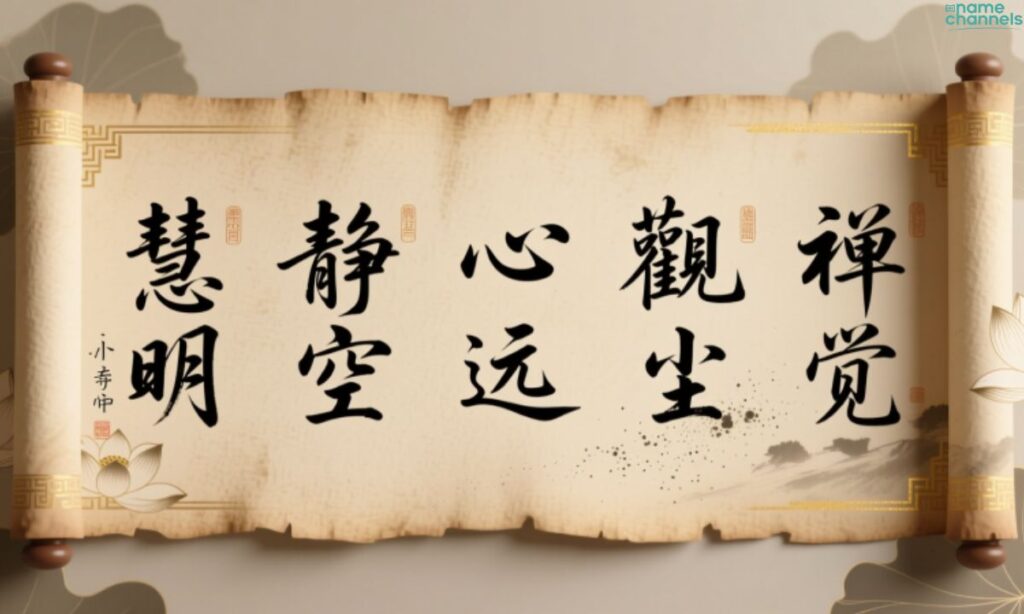 name
channels
禅觉
觀尘
心远
静空
慧明